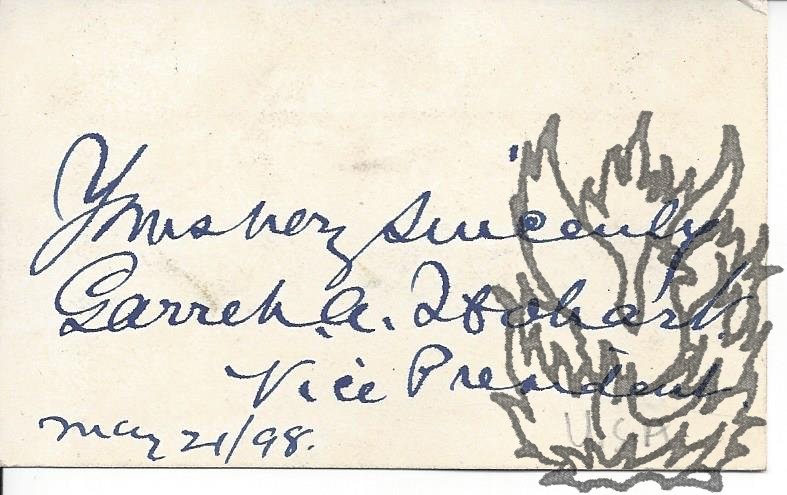 Yours very sincerely
Garret. A. Hobart.
Vice President.
May 21/98.
USA